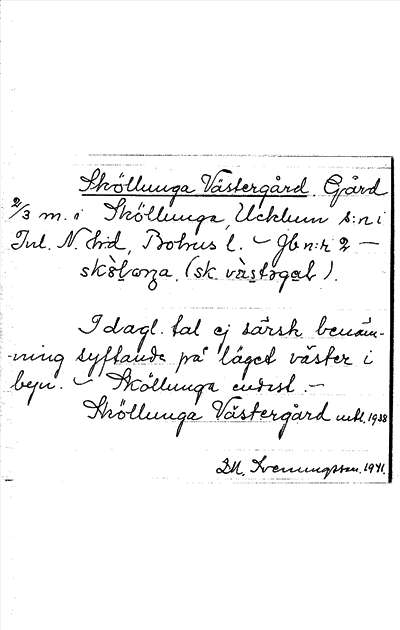 Sköllunga Västergård. Gård
2/3 m. i Sköllunga, Ucklum s:n i
Inl. N. hd, Bohus l. – Jb n:r 2 –
(sk. ).
I dagl. tal ej särsk. benäm-
-ning syftande på läget väster i
byn. – Sköllunga endast. –
Sköllunga Västergård uttl. 1938
D.M. Svenungsson. 1941.